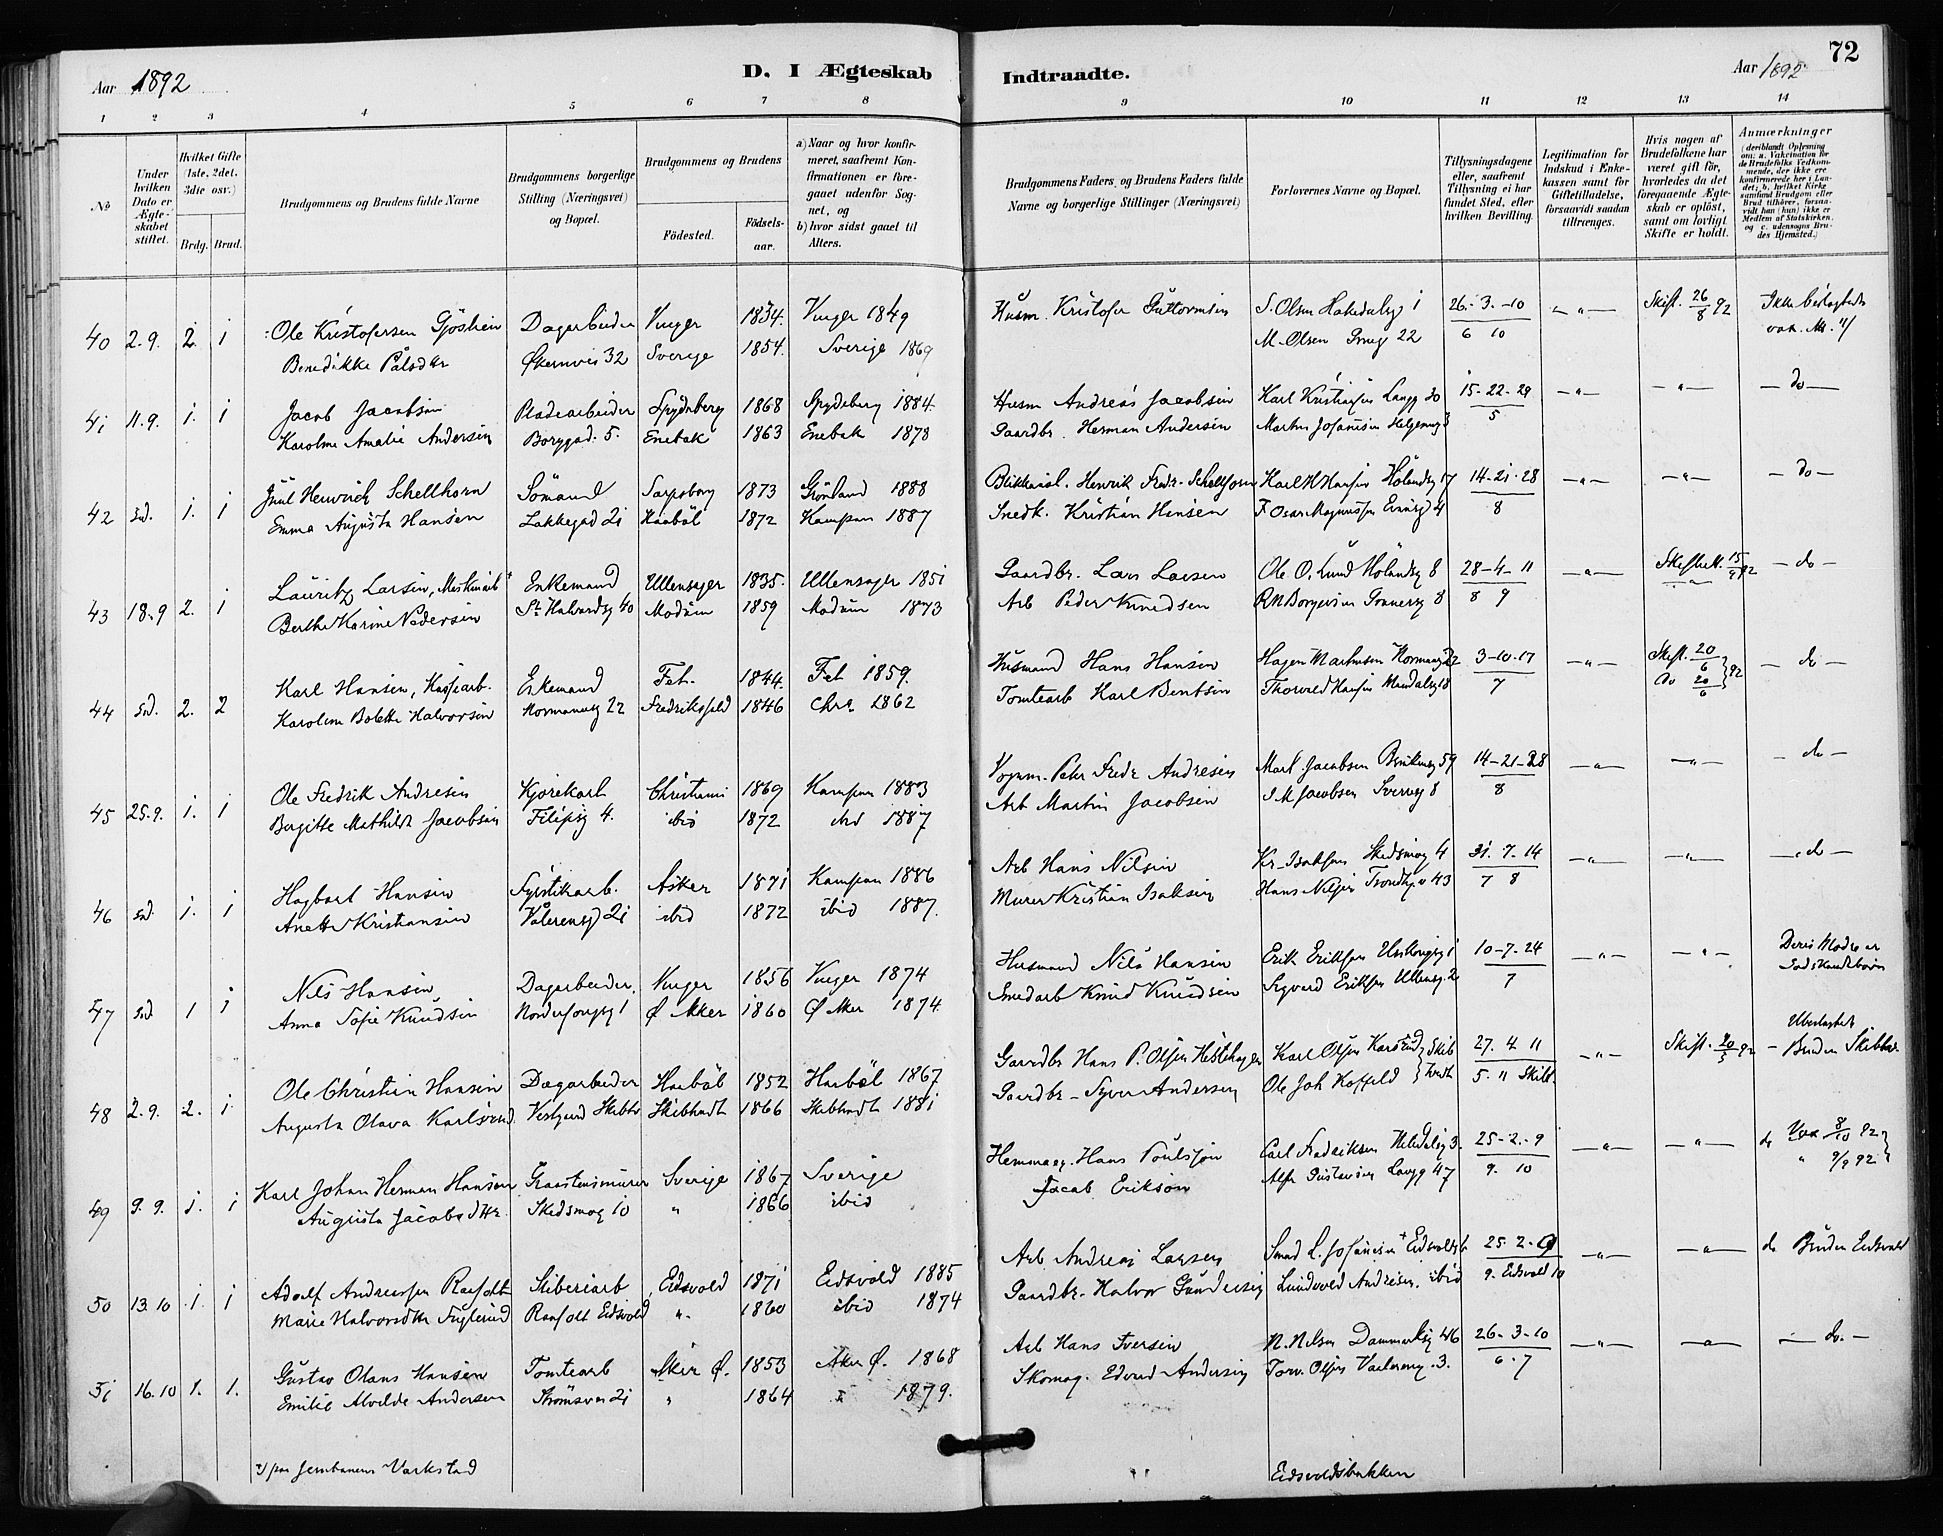 Aar 1892
D. I Ægteskab Indtraadte.
Aar 1892
72
1 2 3 4 5 6 7 8 9 10 11 12 13 14
No
Under hvilken Dato er Ægteskabet stiftet.
Hvilket Gifte (1ste, 2det, 3die osv.)
Brdg. Brud.
Brudgommens og Brudens fulde Navne
Brudgommens borgerlige Stilling (Næringsvei) og Bopæl.
Brudgommens og Brudens
Fødested.
Fødsels-aar.
a) Naar og hvor konfirmeret, saafremt Konfirmationen er foregaaet udenfor Sognet, og
b) hvor sidst gaaet til Alters.
Brudgommens Faders og Brudens Faders fulde Navne og borgerlige Stillinger (Næringsvei)
Forlovernes Navne og Bopæl.
Tillysningsdagene eller, saafremt Tillysning ei har fundet Sted, efter hvilken Bevilling.
Legitimation for Indskud i Enkekassen samt for Giftetilladelse, forsaavidt saadan tiltrænges.
Hvis nogen af Brudefolkene har været gift før, hvorledes da det foregaaende Ægteskab er opløst, samt om lovligt Skifte er holdt.
Anmærkninger (deriblandt Oplysning om: a. Vakcination for de Brudefolks Vedkommende, der ikke ere konfirmerede her i Landet; b. hvilket Kirkesamfund Brudgom eller Brud tilhører, forsaavidt han (hun) ikke er Medlem af Statskirken, og c. udensogns Brudes Hjemsted.)
40 2.9. 2 1 Ole Kristofersen Dagarbeider Vinger 1834. Vinger 1849 Husm. Kristofer Guttormsen S. Olsen Hakedalsg 1 26-3-10 -"- Skift. 26/8 92 Ikke beslægtede
Benedikke Pålsdtr Økernvei 32 Sverige 1854. Sverige 1869 M. Olsen 22 6 10
41 11.9. 1. 1 Jacob Jacobsen Pladearbeider Spydeberg 1868 Spydeberg 1884. Husm Andreas Jacobsen Karl Kristiansen Langg 30 15-22-29 -"- -"- -do-
Karoline Amalie Andersen Borggad. 5. Enebak 1863 Enebak 1878 Gaardbr. Herman Andersen Martin Johansen Helgesensg 3 5
42 sd. 1. 1 Juul Henrich Schellhorn Sömand Sarpsborg 1873 Grönland 1888 Henrik Fredr. Schellhorn Karl M Hansen Hölandsg 17 14-21-28 -"- -"- -do-
Emma Augusta Hansen Lakkegad 21 Haabøl 1872 Kampen 1887 Snedk. Kristian Hansen 4 8
43 18.9 2. 1 Lauritz Larsen, Enkemand Ullensager 1835. Ullensager 1851 Gaardbr. Lars Larsen Ole O. Lund Hölandsg 8 28-4-11 -"- 15/9 92 -do-
Berthe Karine Pedersen St. Halvardsg 40 Modum 1859 Modum 1873 Arb Peder Knudsen 8 8 9
44 sd. 2. 2 Karl Hansen, Enkemand Fet. 1844. Fet 1859. Husmand Hans Hansen Hagen Martinsen Normannsg 22 3-10-17 -"- Skift. 20/6 92 -do-
Karoline Bolette Halvorsen Normannsg 22 Fredrikshald 1846 Chra 1862 Tomtearb Karl Bentsen Thorvald Hansen Mandalsg 18 7 do 20/6
45 25.9. 1. 1 Ole Fredrik Andresen Kjörekarl Christiania 1869 Kampen 1883 Vognm. Petr Fredr Andresen Mart. Jacobsen 59 14-21-28 -"- -"- -do-
Birgitte Mathilde Jacobsen Filipsg 4. ibid 1872 ibid 1887 Arb Martin Jacobsen S M Jacobsen Sverresg 8 8
46 sd. 1. 1 Hagbart Hansen Fyrstikarb. Asker 1871 Kampen 1886 Arb Hans Nilsen Kr. Isaksen Skedsmog 4 31. 7. 14 -"- -"- -do-
Anette Kristiansen Vålerengd 21 ibid 1872 ibid 1887. Murer Kristian Isaksen Hans Nilsen 43 7 8
47 sd 1 1 Nils Hansen Dagarbeider, Vinger 1856 Vinger 1874 Husmand Nils Hansen Erik Eriksen 1 10-7-24 -"- -"- Deres Mødre er Sødskendebørn
Anna Sofie Knudsen 1 Ø Aker 1860 Ø Aker 1874. Smedarb Knud Knudsen Sigvard Eriksen 7
48 2.9. 2. 1 Ole Christian Hansen Dagarbeider Haabøl 1852 Haabøl 1867 Gaardbr Hans P. Olsen Karl Olsen 27. 4. 11 -"- Skift. 20/5 92 - Ubeslægtede Bruden Skibtv.
Augusta Olava Karlsrud Skibtv Skibtvedt 1866 Skibtvedt 1881 Gaardbr. Syver Andersen Ole Joh Koffeld 5. 11 Skibt.
49 9.9. 1. 1 Karl Johan Herman Hansen Graastensmurer Sverige 1867 Sverige Hans Poulsson Carl Fredriksen 3. 25-2-9 -"- -"- do Vac 8/10 92
Augusta Jacobsdtr. Skedsmog 10 " 1866 ibid Jacob Eriksson Alfr Gustavsen Langg 47 9. 10 " 9/9 92
50 13.10 1. 1 Adolf Andreassen Raaholt Stiberiarb. Eidsvold 1871 Eidsvold 1885 Arb. Andreas Larsen Smed L. Johansen + 25. 2. 9 -"- -"- do Bruden Eidsvold
Marie Halvorsdtr Fuglerud Raaholt Eidsvold ". 1860 ibid 1874 Gaardbr. Halvor Gundersen Lundvold Andresen. ibid 9. Eidsvold 10
51 16.10 1. 1. Gustav Olans Hansen Tomtearb Aker Ø. 1853 Aker Ø. 1868 Arb Hans Iversen N. Nilsen Danmarksg 46 26-3-10 -"- -"- -do.-
Emilie Alvilde Andersen Strömsvei 21 " 1864 " 1879. Skomag. Edvard Andersen Torv. Olsen Vaalereng. 3. 6. 7
1) paa Jernbanens Værksted
Eidsvoldsbakken